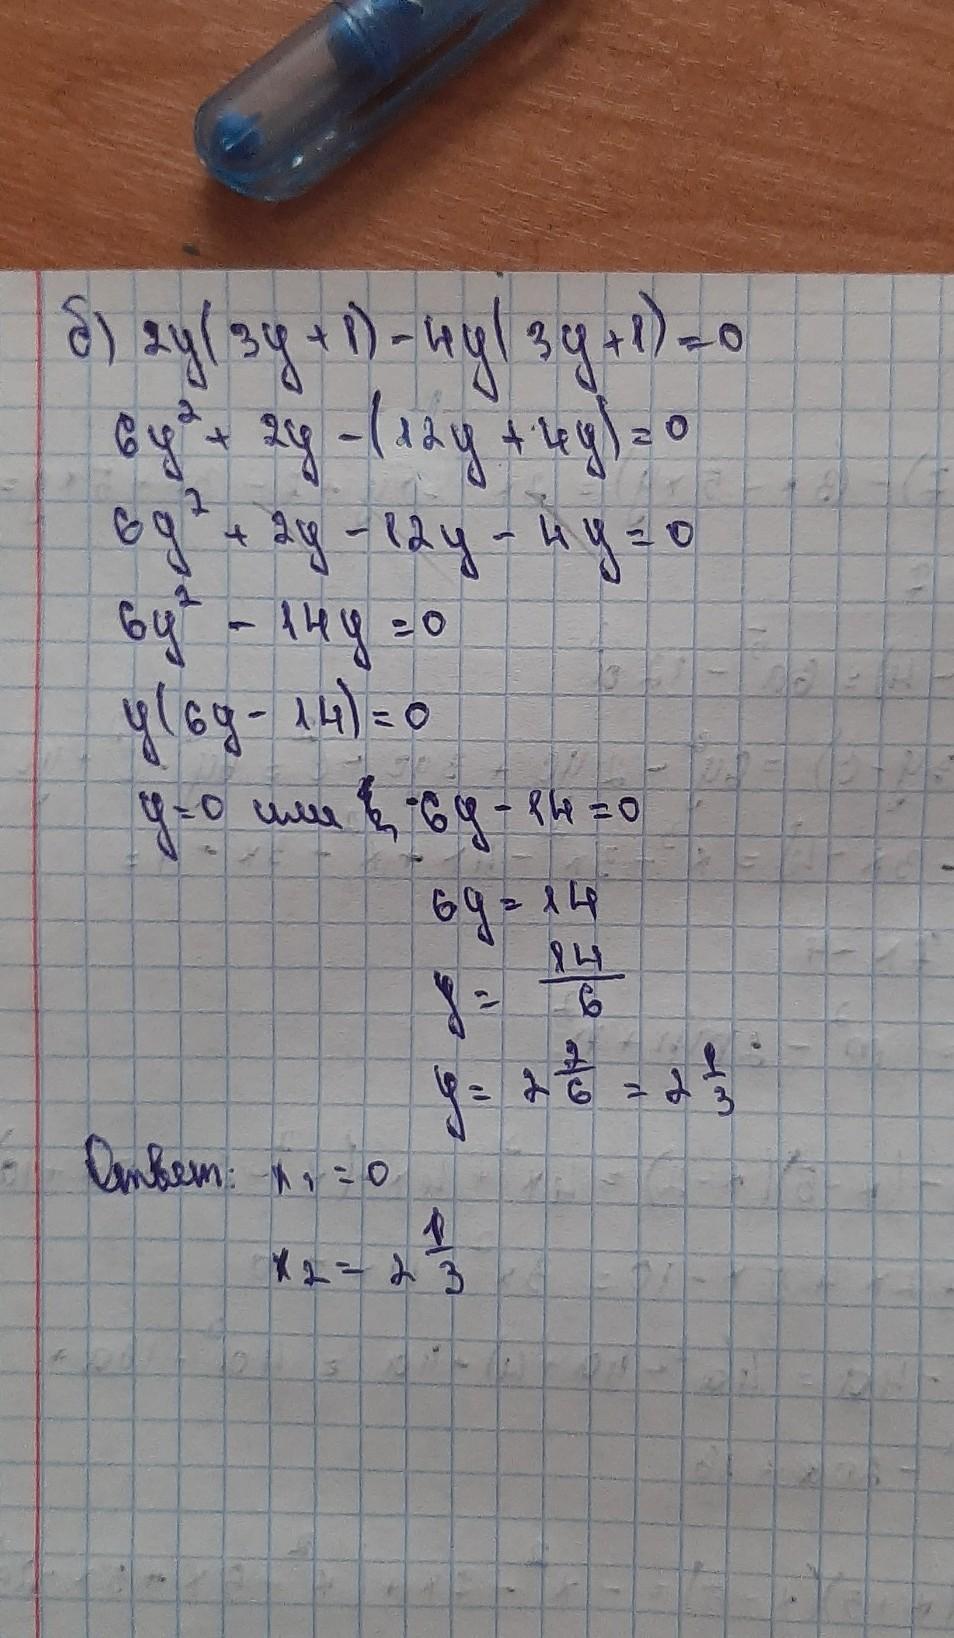 б) 2y(3y+1)-4y(3y+1)=0
6y²+ 2y -(12y + 4y)=0
6y² + 2y - 12y - 4y=0
6y² - 14y =0
y(6y- 14)=0
y=0 или 6y-14=0
6y= 14
y= 14/6
y= 2 2/6 = 2 1/3
Ответ: x₁=0
x₂= 2 1/3